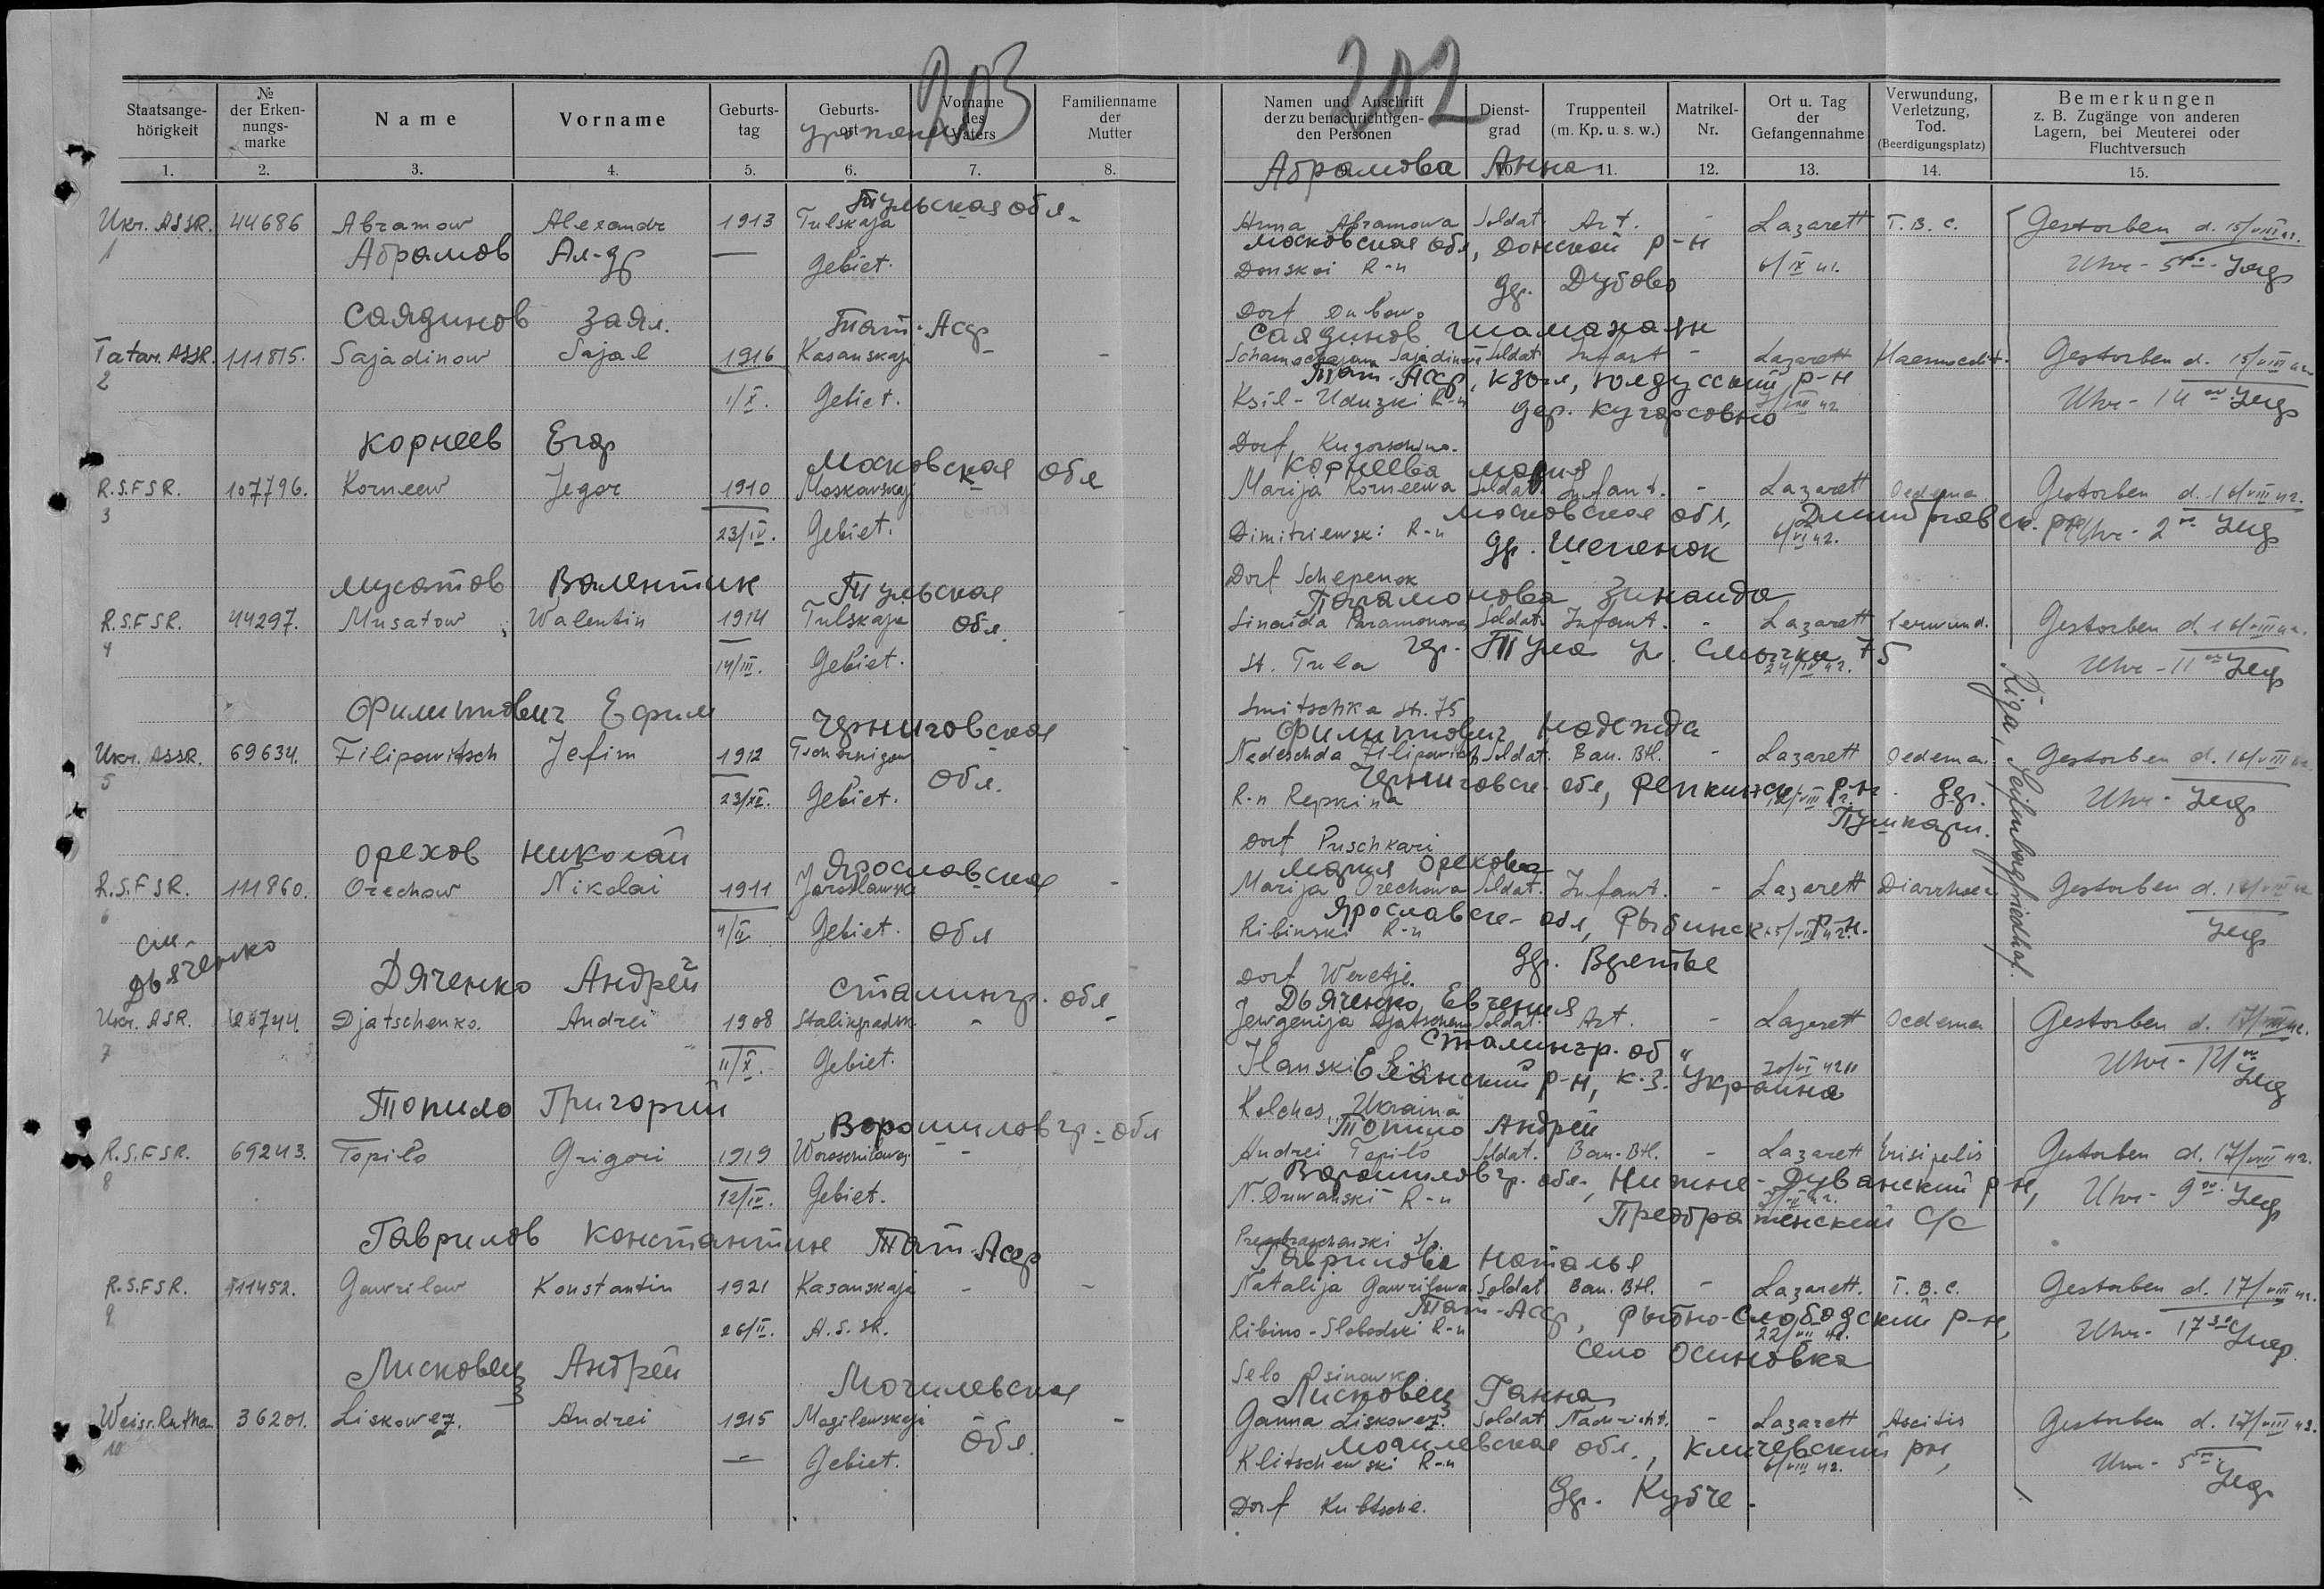 203
202
Staatsange-hörigkeit № der Erken-nungs-marke Name Vorname Geburts-tag Geburts-ort Vorname des Vaters Familienname der Mutter
Namen und Anschrift der zu benachrichtigen-den Personen Dienst-grad Truppenteil (m. Kp. u. s. w.) Matrikel-Nr. Ort u. Tag der Gefangennahme Verwundung, Verletzung, Tod. (Beerdigungsplatz) Bemerkungen z. B. Zugänge von anderen Lagern, bei Meuterei oder Fluchtversuch
1. 2. 3. 4. 5. 6. 7. 8. 11. 12. 13. 14. 15.
Абрамова Анна
Тульская обл.
Ukr. ASSR. 44686 Abramow Alexandr 1913 Tulskaja Anna Abramowa Soldat Art. - Lazarett T.B.C. Gestorben d. 15/VIII 42.
1 Абрамов Ал-др — Gebiet. Московская обл, Донской р-н
Donskoi R-n 6/IX 41. Uhr - 5
др. Дубово
Dorf Dubowo
Саядинов Заял. Тат. Асср Саядинов Шамахаян
Tatar. ASSR. 111815. Sajadinow Sajal 1916 Kasanskaja - - Soldat Infant - Lazarett Gestorben d. 15/VIII 42
2 1/X. Gebiet. Тат. Асср, Кзыл, Юлдусский р-н
Ksil-Uduzki R-n /VIII 42 Uhr - 14
дер. Кугарсовно
Dorf Kugorschino.
Корнеев Егор Московская обл Корнеева Мария
R.S.F.S.R. 107796. Korneew Jegor 1910 Moskowskaj Marija Korneewa Soldat Infant. - Lazarett Oedema Gestorben d. 16/VIII 42.
3 23/IV. Gebiet. Московская обл, Дмитровск. р-н
Dimitriewski R-n 6/VI 42. Uhr - 2
др. Щепенок
Dorf Schepenok
Мусатов Валентин Тульская обл. Парамонова Зинаида
R.S.F.S.R. 44297. Musatow Walentin 1914 Tulskaja - Sinaida Paramonowa Soldat Infant. - Lazarett Verwund. Gestorben d. 16/VIII 42.
4 14/III. Gebiet. гр. Тула ул. Смычки 75
St. Tula 24/IV 42. Uhr - 11
Smitschka str. 75
Филиппович Ефим Черниговская обл. Филиппович Надежда
Ukr. ASSR. 69634. Filipowitsch Jefim 1912 Tschernigow - Nadeschda Filipowitsch Soldat. Bau. Btl. - Lazarett Oedema. Gestorben d. 16/VIII 42
5 23/XI. Gebiet. Черниговск. обл, Репкинск. р-н. др. Пушкари.
R-n Repkina Uhr -
Dorf Puschkari
Орехов Николай Ярославская обл Мария Орехова
R.S.F.S.R. 111860. Orechow Nikolai 1911 Jaroslawska - Marija Orechowa Soldat. Infant. - Lazarett Diarrhoea Gestorben d. 16/VIII 42
6 4/II Gebiet. Ярославск. обл, Рыбинск. р-н.
Ribinski R-n 15/VIII 42.
др. Веретье
Dorf Weretje.
см. Дьяченко
Дяченко Андрей Сталингр. обл Дьяченко Евгения
Ukr. ASR. 26744 Djatschenko. Andrei 1908 Stalingradsk - - Jewgenija Djatschenko Soldat. Art. - Lazarett Oedema Gestorben d. 17/VIII 42.
7 11/X. Gebiet. Сталингр. об
Еланский р-н, к.з. "Украина"
Ilanski 20/VI 42 Uhr - 12
Kolchos "Ukraina"
Топило Григорий Ворошиловгр. обл Топило Андрей
R.S.F.S.R. 69243. Topilo Grigori 1919 Woroschilowg. - Andrei Topilo Soldat. Bau-Btl. - Lazarett Erisipelis Gestorben d. 17/VIII 42.
8 12/IV. Gebiet. Ворошиловгр. обл., Нижне-Дуванский р-н,
N. Duwanski R-n Uhr - 9
Преображенский с/с
Preobraschenski s/s.
Гаврилов Константин Тат. Асср Гаврилова Наталья
R.S.F.S.R. 111452. Gawrilow Konstantin 1921 Kasanskaja - - Natalija Gawrilowa Soldat Bau. Btl. - Lazarett. T.B.C. Gestorben d. 17/VIII 42.
9 26/II. A.S.SR. Тат-Асср, Рыбно-Слободский р-н,
Ribino-Slobodski R-n 22/VII 42. Uhr - 17
село Осиновка
Selo Osinowka.
Лисковец Андрей Могилевская обл. Лисковец Ганна
Weissruthen 36201. Liskowez. Andrei 1915 Mogilewskaja - - Ganna Liskowez. Soldat Nachricht. - Lazarett Ascitis Gestorben d. 17/VIII 42.
10 — Gebiet. Могилевская обл., Кличевский р-н,
Klitschewski R-n 6/VIII 42. Uhr - 5
др. Кубче.
Dorf Kubtsche.
Riga,